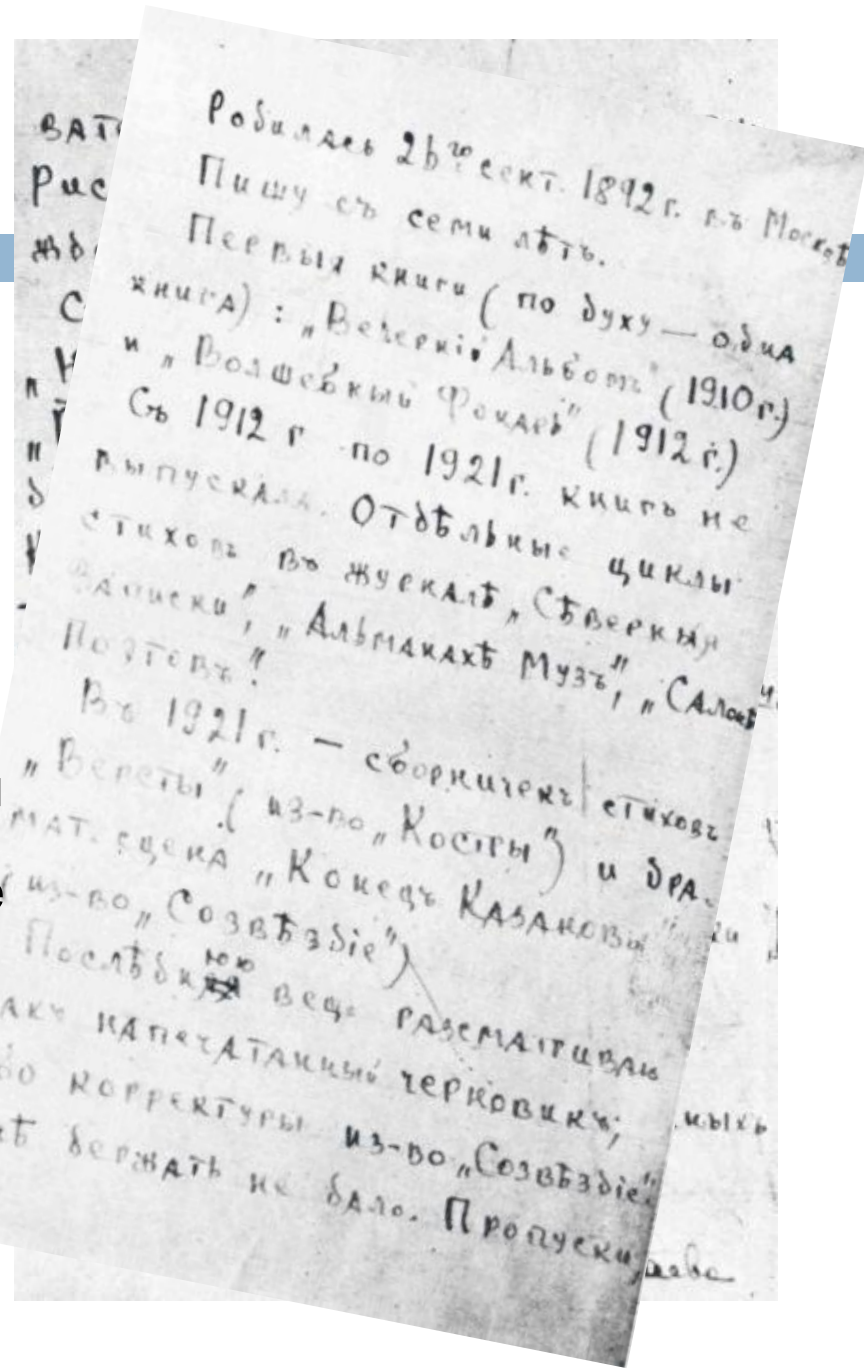 Родилась 26го сент. 1892 г. въ Москвѣ
Пишу съ семи лѣтъ.
Первыя книги ( по духу — одна
книга) : „Вечернiй Альбомъ" ( 1910 г.)
и „Волшебный Фонарь" ( 1912 г.)
Съ 1912 г по 1921 г. книгъ не
выпускала. Отдѣльные циклы
стиховъ въ журналѣ „Сѣверныя
Записки", „Альманахѣ Музъ", „Салонѣ
Поэтовъ".
Въ 1921 г. — сборничекъ стиховъ
„Версты" ( из-во „Костры") и дра-
мат. сцена „Конецъ Казановы"
( из-во „Созвѣздiе")
Послѣднюю вещь разсматриваю
какъ напечатанный черновикъ;
до корректуры из-во „Созвѣздiе"
держать не дало. Пропуски,